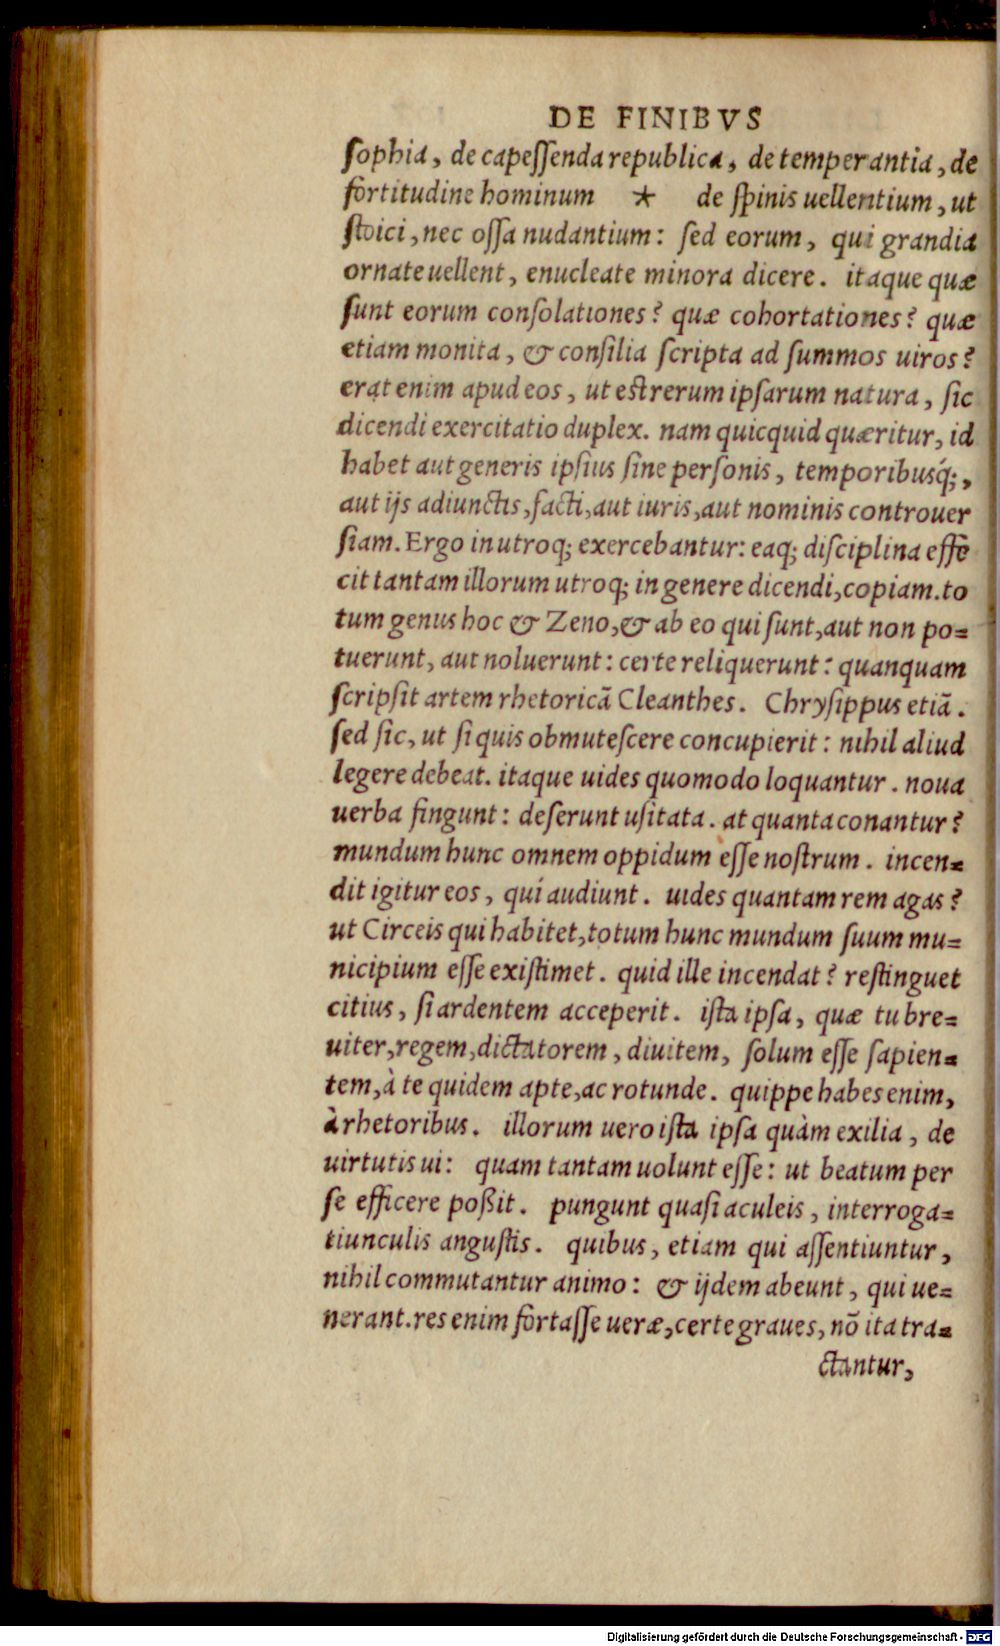 DE FINIBVS
ſophia, de capeſſenda republica, de temperantia, de
fortitudine hominum * de ſpinis uellentium, ut
ſtoici, nec oſſa nudantium: ſed eorum, qui grandia
ornate uellent, enucleate minora dicere. itaque quæ
ſunt eorum conſolationes? quæ cohortationes? quæ
etiam monita, & conſilia ſcripta ad ſummos uiros?
erat enim apud eos, ut eſt rerum ipſarum natura, ſic
dicendi exercitatio duplex. nam quicquid quæritur, id
habet aut generis ipſius ſine perſonis, temporibusq́;,
aut ijs adiunctis, facti, aut iuris, aut nominis controuer
ſiam. Ergo in utroq; exercebantur: eaq; diſciplina effe
cit tantam illorum utroq; in genere dicendi, copiam. to
tum genus hoc & Zeno, & ab eo qui ſunt, aut non po=
tuerunt, aut noluerunt: certe reliquerunt: quanquam
ſcripſit artem rhetoricã Cleanthes. Chryſippus etiã.
ſed ſic, ut ſi quis obmuteſcere concupierit: nihil aliud
legere debeat. itaque uides quomodo loquantur. noua
uerba fingunt: deſerunt uſitata. at quanta conantur?
mundum hunc omnem oppidum eſſe noſtrum. incen=
dit igitur eos, qui audiunt. uides quantam rem agas?
ut Circeis qui habitet, totum hunc mundum ſuum mu=
nicipium eſſe exiſtimet. quid ille incendat? reſtinguet
citius, ſi ardentem acceperit. iſta ipſa, quæ tu bre=
uiter, regem, dictatorem, diuitem, ſolum eſſe ſapien=
tem, à te quidem apte, ac rotunde. quippe habes enim,
à rhetoribus. illorum uero iſta ipſa quàm exilia, de
uirtutis ui: quam tantam uolunt eſſe: ut beatum per
ſe efficere poßit. pungunt quaſi aculeis, interroga=
tiunculis anguſtis. quibus, etiam qui aſſentiuntur,
nihil commutantur animo: & ijdem abeunt, qui ue=
nerant. res enim fortaſſe ueræ, certe graues, nõ ita tra=
ctantur,
Digitalisierung gefördert durch die Deutsche Forschungsgemeinschaft - DFG